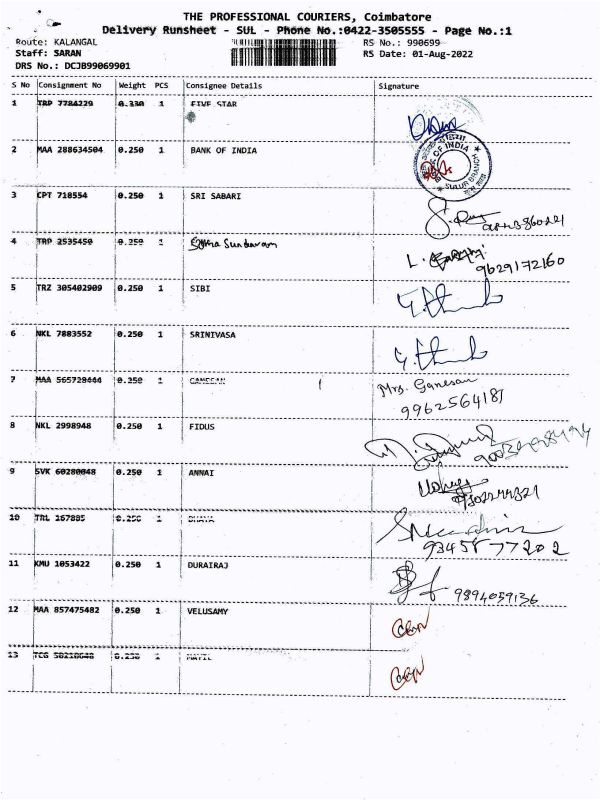 THE PROFESSIONAL COURIERS, Coimbatore
Delivery Runsheet - SUL - Phone No.:0422-3505555 - Page No.:1
Route: KALANGAL RS No.: 990699
Staff: SARAN RS Date: 01-Aug-2022
DRS No.: DCJB99069901
S No Consignment No Weight PCS Consignee Details Signature
1 TRP 7784229 0.330 1 FIVE STAR
2 MAA 288634504 0.250 1 BANK OF INDIA
BANK OF INDIA SULUR BRANCH
3 CPT 718554 0.250 1 SRI SABARI
4 TRP 2535450 0.250 1 Sundaram
9629172160
5 TRZ 305402909 0.250 1 SIBI
6 NKL 7883552 0.250 1 SRINIVASA
7 MAA 565728444 0.250 1 GANESAN Mrs. Ganesan
9962564181
8 NKL 2998948 0.250 1 FIDUS
9 SVK 60280048 0.250 1 ANNAI
10 TRL 167885 0.250 1
9345877202
11 KMU 1053422 0.250 1 DURAIRAJ 9894059136
12 MAA 857475482 0.250 1 VELUSAMY
13 0.250 1